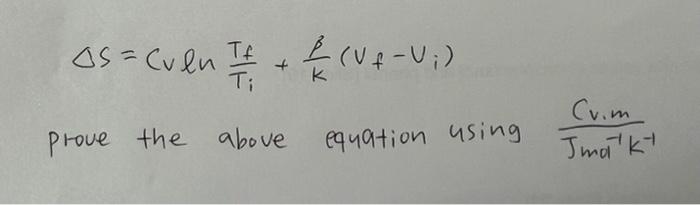 ΔS = Cv ln Tf/Ti + β/k (Vf - Vi)
prove the above equation using Cv.m / Jmol⁻¹ K⁻¹